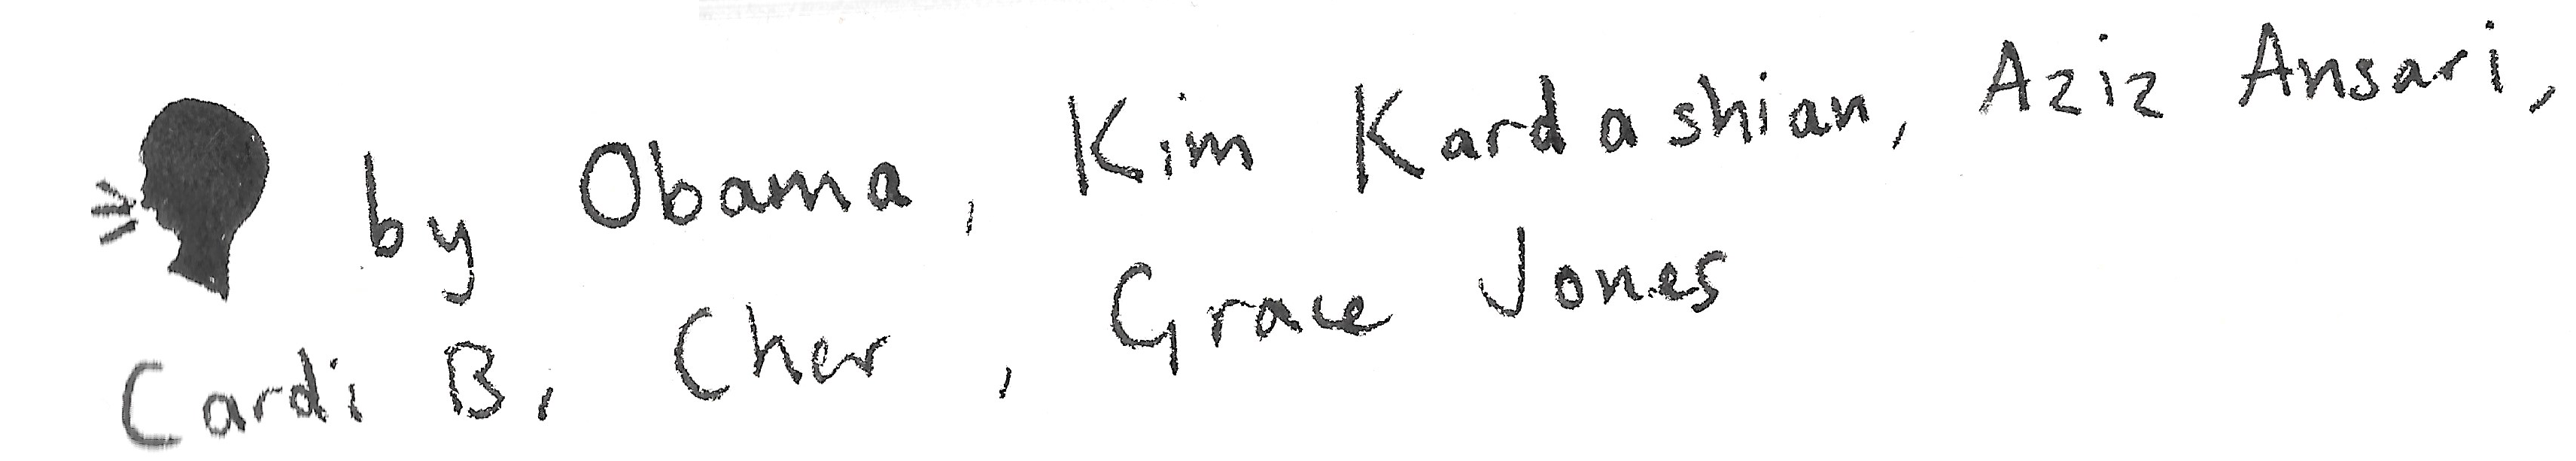 by Obama, Kim Kardashian, Aziz Ansari,
Cardi B, Cher, Grace Jones